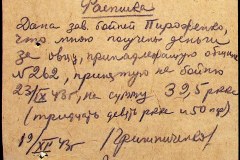 Расписка
Дана зав. бойней Пироженко,
что мною получены деньги
за овцу, принадлежащую общине
№262, принятую на бойню
23/IX 43г, на сумму 39,5 р.км
(тридцать девять р.км и 50 пф)
19/XII 43г